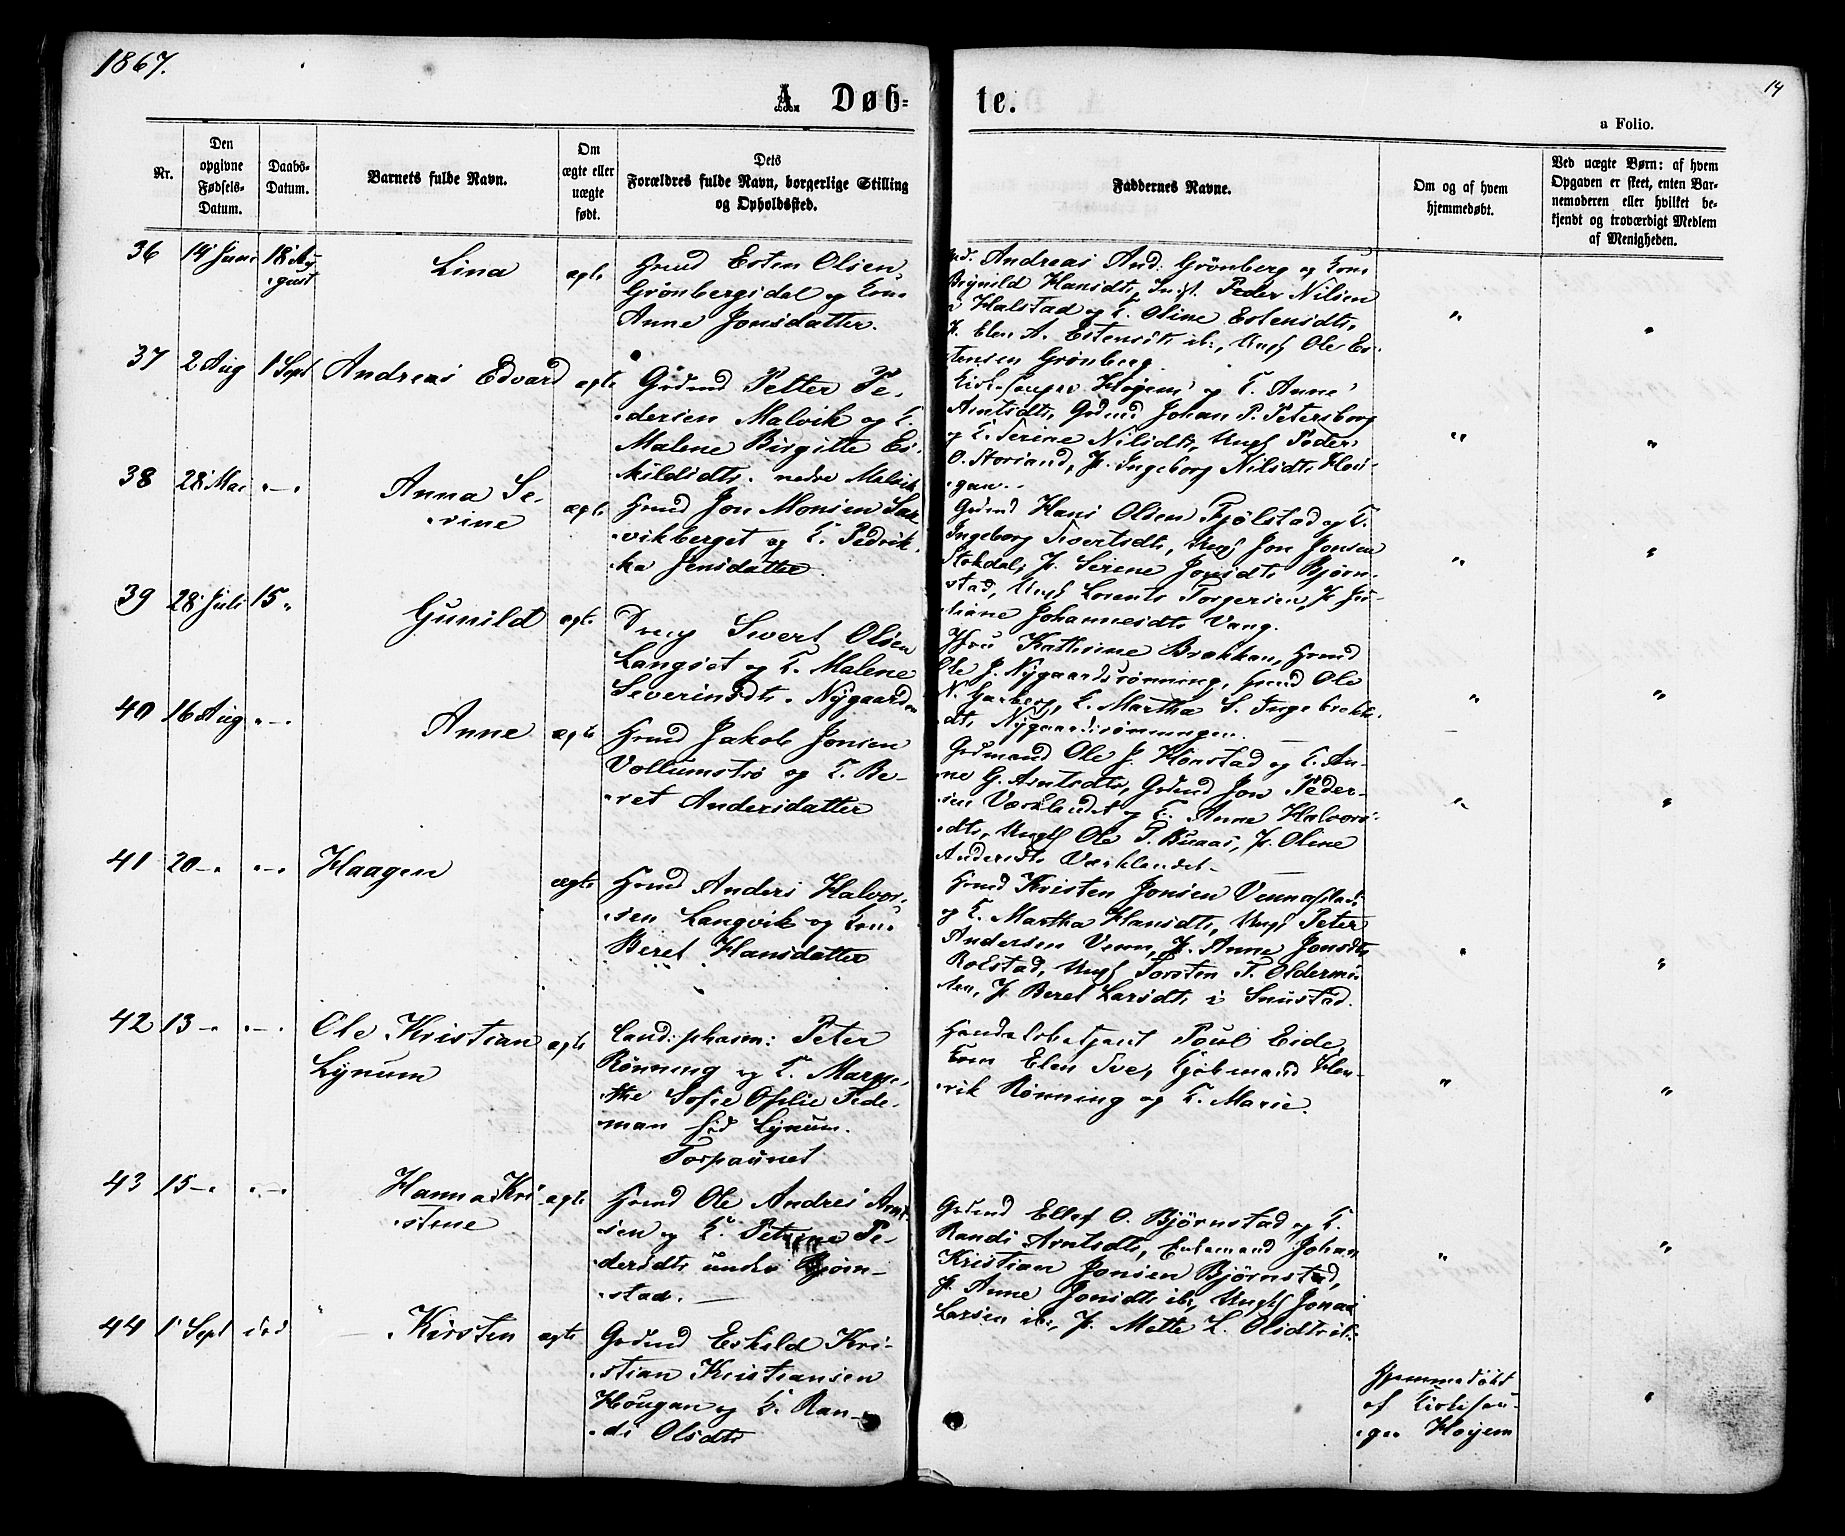 1867.
14
A. Døb=
te.
a Folio.
Nr.
Den
opgivne
Fødsels-
Datum.
Daabs-
Datum.
Barnets fulde Navn.
Om
ægte eller
uægte
født.
Dets
Forældres fulde Navn, borgerlige Stilling
og Opholdssted.
Faddernes Navne.
Om og af hvem
hjemmedøbt.
Ved uægte Børn: af hvem
Opgaven er skeet, enten Bar-
nemoderen eller hvilket be-
kjendt og troværdigt Medlem
af Menigheden.
36 14 Juni 18 Au-
gust
Lina
ægte
Hmd Esten Olsen
Grønbergsdal og Kone
Anne Jonsdatter.
Andreas And: Grønberg og Kone
Hansdt., Peder Nilsen
Halstad og K. Oline Estensdt.,
P. Elen A. Estensdt. ib:, Ungk Ole Es-
tensen Grønberg.
"
"
37 2 Aug 1 Sept
Andreas Edvard
ægte
Grdmd Petter Pe-
dersen Malvik og K.
Malene Birgitte Es-
kildsdt. nedre Malvik
Kirkesanger Høyem og K. Anne
Arntsdt., Grdmd Johan P. Petersborg
og K. Serine Nilsdt., Ungk Peder
O. Storsand, P. Ingeborg Nilsdt. Hou-
gan.
"
"
38 28 Mai "—"
Anna Se-
rine
ægte
Hmd Jon Monsen Sax
vikberget og K. Fedrik-
ka Jensdatter.
Grdmd Hans Olsen Fjølstad og K.
Ingeborg Sivertsdt., Ungk Jon Jonsen
Stokdal, P. Serine Jonsdt. Bjørn-
stad, Ungk Lorents Torgersen, P. Ju-
liane Johannesdt. Vang.
"
"
39 28 Juli 15 "
Gunild
ægte
Dreng Sivert Olsen
Langset og K. Malene
Severinsdt. Nygaarden
Kathrine Brækkan, Hmd
Ole J. Nygaardsrønning, Hmd Ole
N. Garberg, K. Martha S. Ingebrekt-
dt. Nygaardsrønningen.
"
"
40 16 Aug "—"
Anne
ægte
Hmd Jakob Jonsen
Vollumstrø og K. Be-
ret Andersdatter
Grdmand Ole J. Hønstad og K. An-
ne G. Arntsdt., Grdmd Jon Peder-
sen Værklandet og K. Anne Halvors-
dt., Ungk Ole P. Buaas, P. Oline
Andersdt. Værklandet.
"
"
41 20 —" "—"
Haagen
ægte
Hmd Anders Halvor-
sen Langvik og Kone
Beret Hansdatter
Hmd Kristen Jonsen Vennastad
og K. Martha Hansdt., Ungk Peter
Andersen Venn, P. Anne Jonsdt.
Rolstad, Ungk Torsten T. Oldermo-
len, P. Beret Larsdt. i Snustad.
"
"
42 13 —" "—"
Ole Kristian
Lynum
ægte
Cand: pharm: Peter
Rønning og K. Margre-
the Sofie Ofelie Tide-
man fød Lynum.
Torpaunet
Handelsbetjent Poul Eide,
Kone Elen Eve, Kjøbmand Hen-
rik Rønning og K. Marie.
"
"
43 15 —" "—"
Hanna Kri-
stine
ægte
Hmd Ole Andreas Arnt-
sen og K. Petrine Pe-
dersdt. under Bjørn-
stad.
Grdmd Ellef O. Bjørnstad og K.
Randi Arntsdt., Enkemand Johan
Kristian Jonsen Bjørnstad,
P. Anne Jonsdt. ib:, Ungk Jonas
Larsen ib:, P. Mette L. Olsdt. ib.
"
"
44 1 Sept død
Kirsten
ægte
Grdmd Eskild Kri-
stian Kristiansen
Hougan og K. Ran-
di Olsdt.
Hjemmedøbt
af Kirkesan-
ger Høyem
"